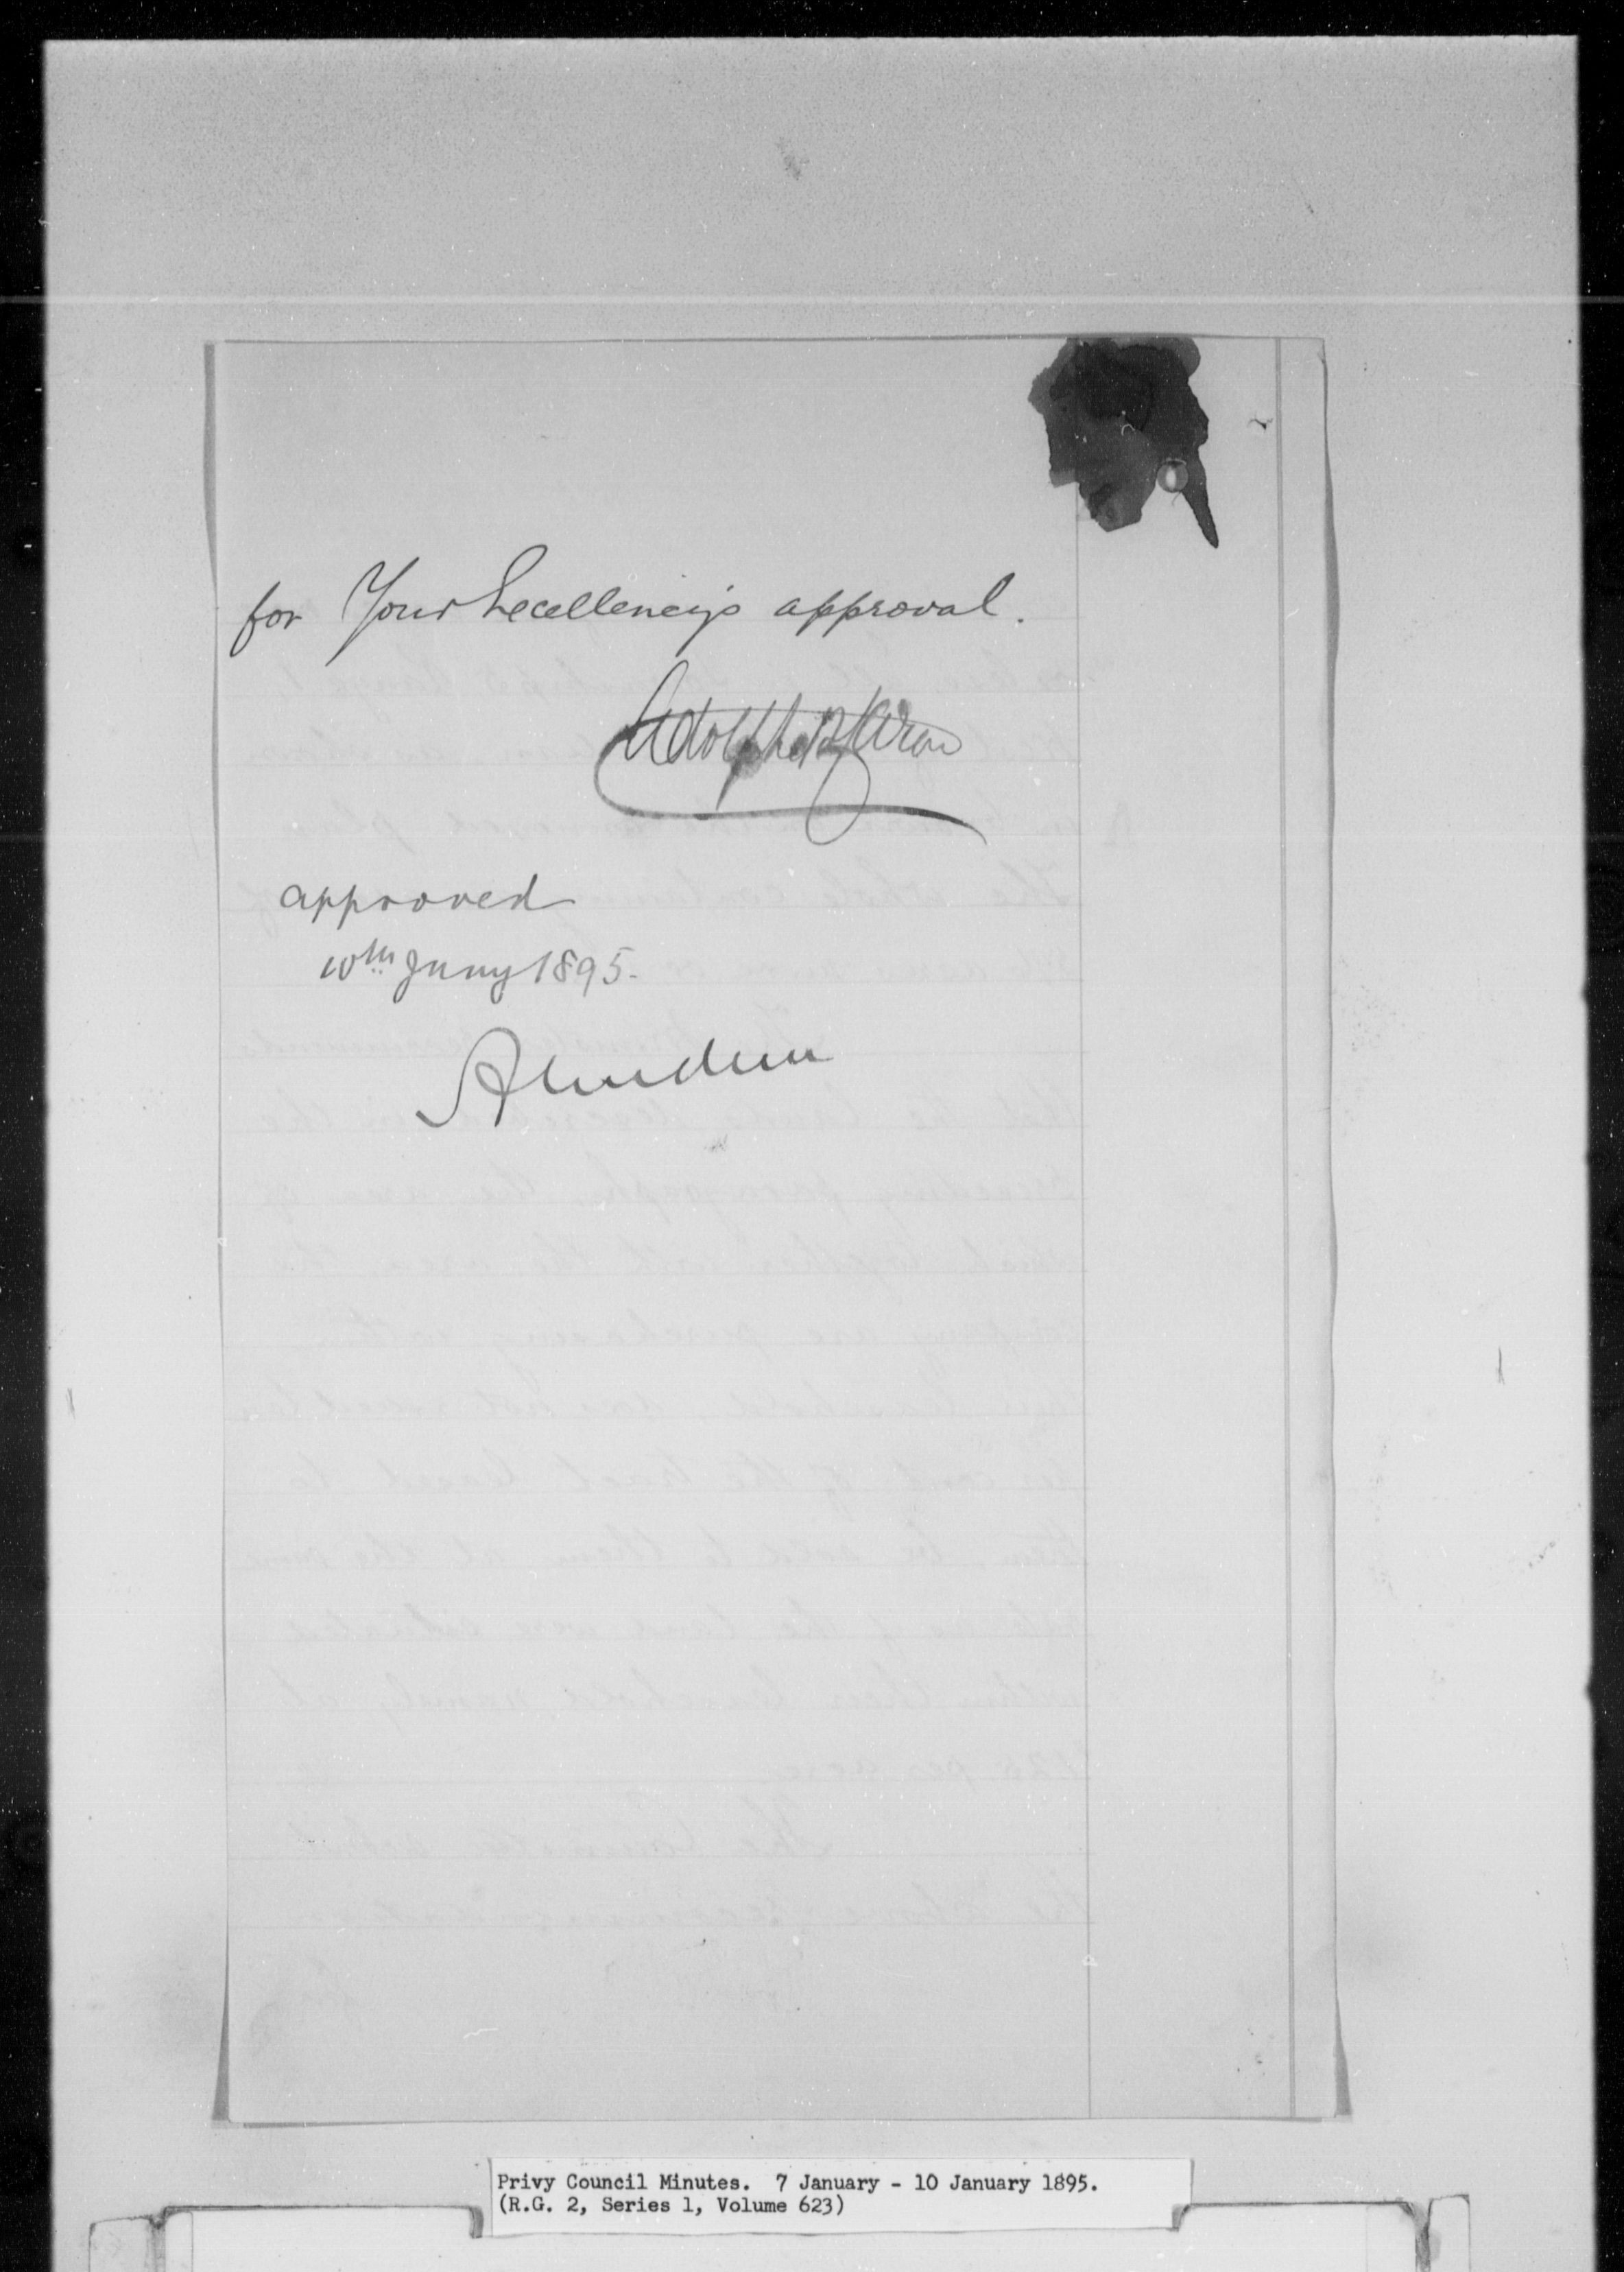 for Your Excellency's approval.
Adolphe P. Caron
approved
10th Jany 1895.
Aberdeen
Privy Council Minutes. 7 January - 10 January 1895.
(R.G. 2, Series 1, Volume 623)